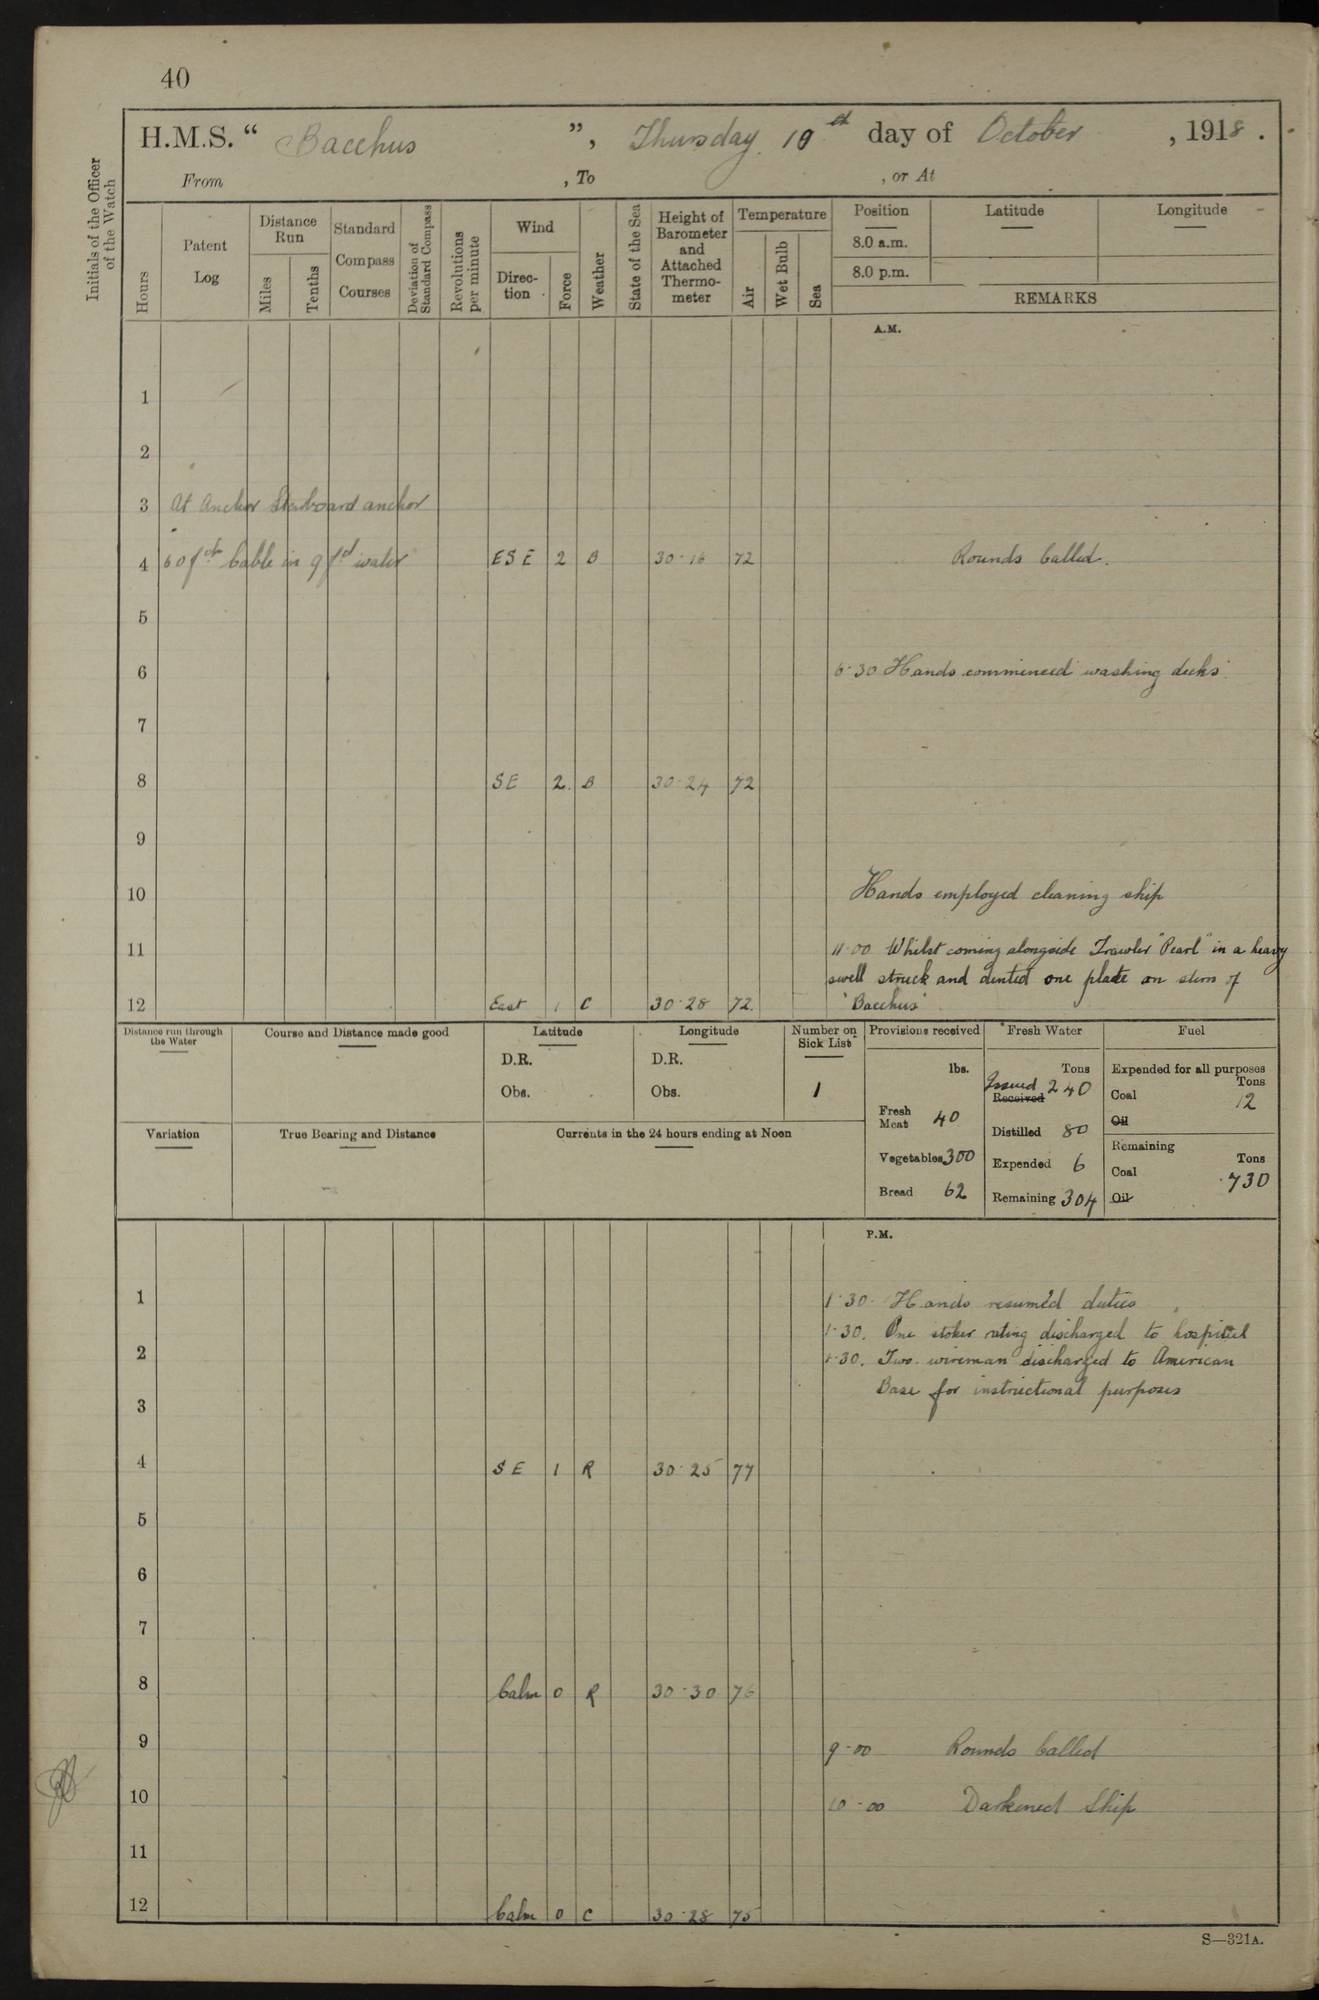 40
H.M.S. " Bacchus ", Thursday 10th day of October, 1918.
From , To , or At
Initials of the Officer of the Watch
Hours
Patent Log
Distance Run
Miles
Tenths
Standard Compass Courses
Deviation of Standard Compass
Revolutions per minute
Wind
Direc-tion
Force
Weather
State of the Sea
Height of Barometer and Attached Thermo-meter
Temperature
Air
Wet Bulb
Sea
Position Latitude Longitude
8.0 a.m.
8.0 p.m.
REMARKS
A.M.
1
2
3 At Anchor Starboard anchor
4 60 fth Cable in 9 fth water ESE 2 B 30·16 72 Rounds Called.
5
6 6·30 Hands commenced washing decks.
7
8 SE 2. B 30·24 72
9
10 Hands employed cleaning ship
11 11·00 Whilst coming alongside Trawler "Pearl" in a heavy
swell struck and dented one plate on stern of
12 East 1 C 30·28 72. "Bacchus"
Distance run through the Water
Course and Distance made good
Latitude
D.R.
Obs.
Longitude
D.R.
Obs.
Number on Sick List
1
Provisions received
lbs.
Fresh Meat 40
Vegetables 300
Bread 62
Fresh Water
Tons
Issued 240
Received
Distilled 80
Expended 6
Remaining 304
Fuel
Expended for all purposes
Tons
Coal 12
Oil
Remaining
Tons
Coal 730
Oil
Variation
True Bearing and Distance
Currents in the 24 hours ending at Noon
P.M.
1 1·30. Hands resumed duties
1·30. One stoker rating discharged to hospital
2 1·30. Two wireman discharged to American
3 Base for instructional purposes
4 SE 1 R 30·25 77
5
6
7
8 Calm 0 R 30·30 76
9 9-00 Rounds Called
10 10-00 Darkened Ship
11
12 Calm 0 C 30·28 75
S—321A.